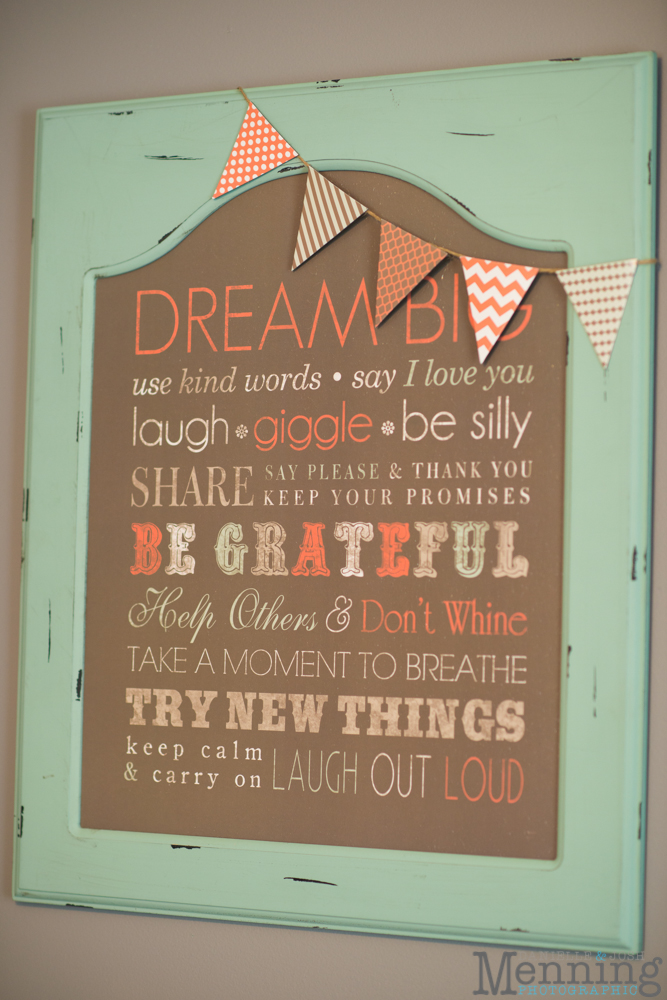 DREAM BIG
use kind words • say I love you
laugh giggle be silly
SHARE SAY PLEASE & THANK YOU
KEEP YOUR PROMISES
BE GRATEFUL
Help Others & Don't Whine
TAKE A MOMENT TO BREATHE
TRY NEW THINGS
keep calm
& carry on LAUGH OUT LOUD
& JOSH
Menning
PHOTOGRAPHIC